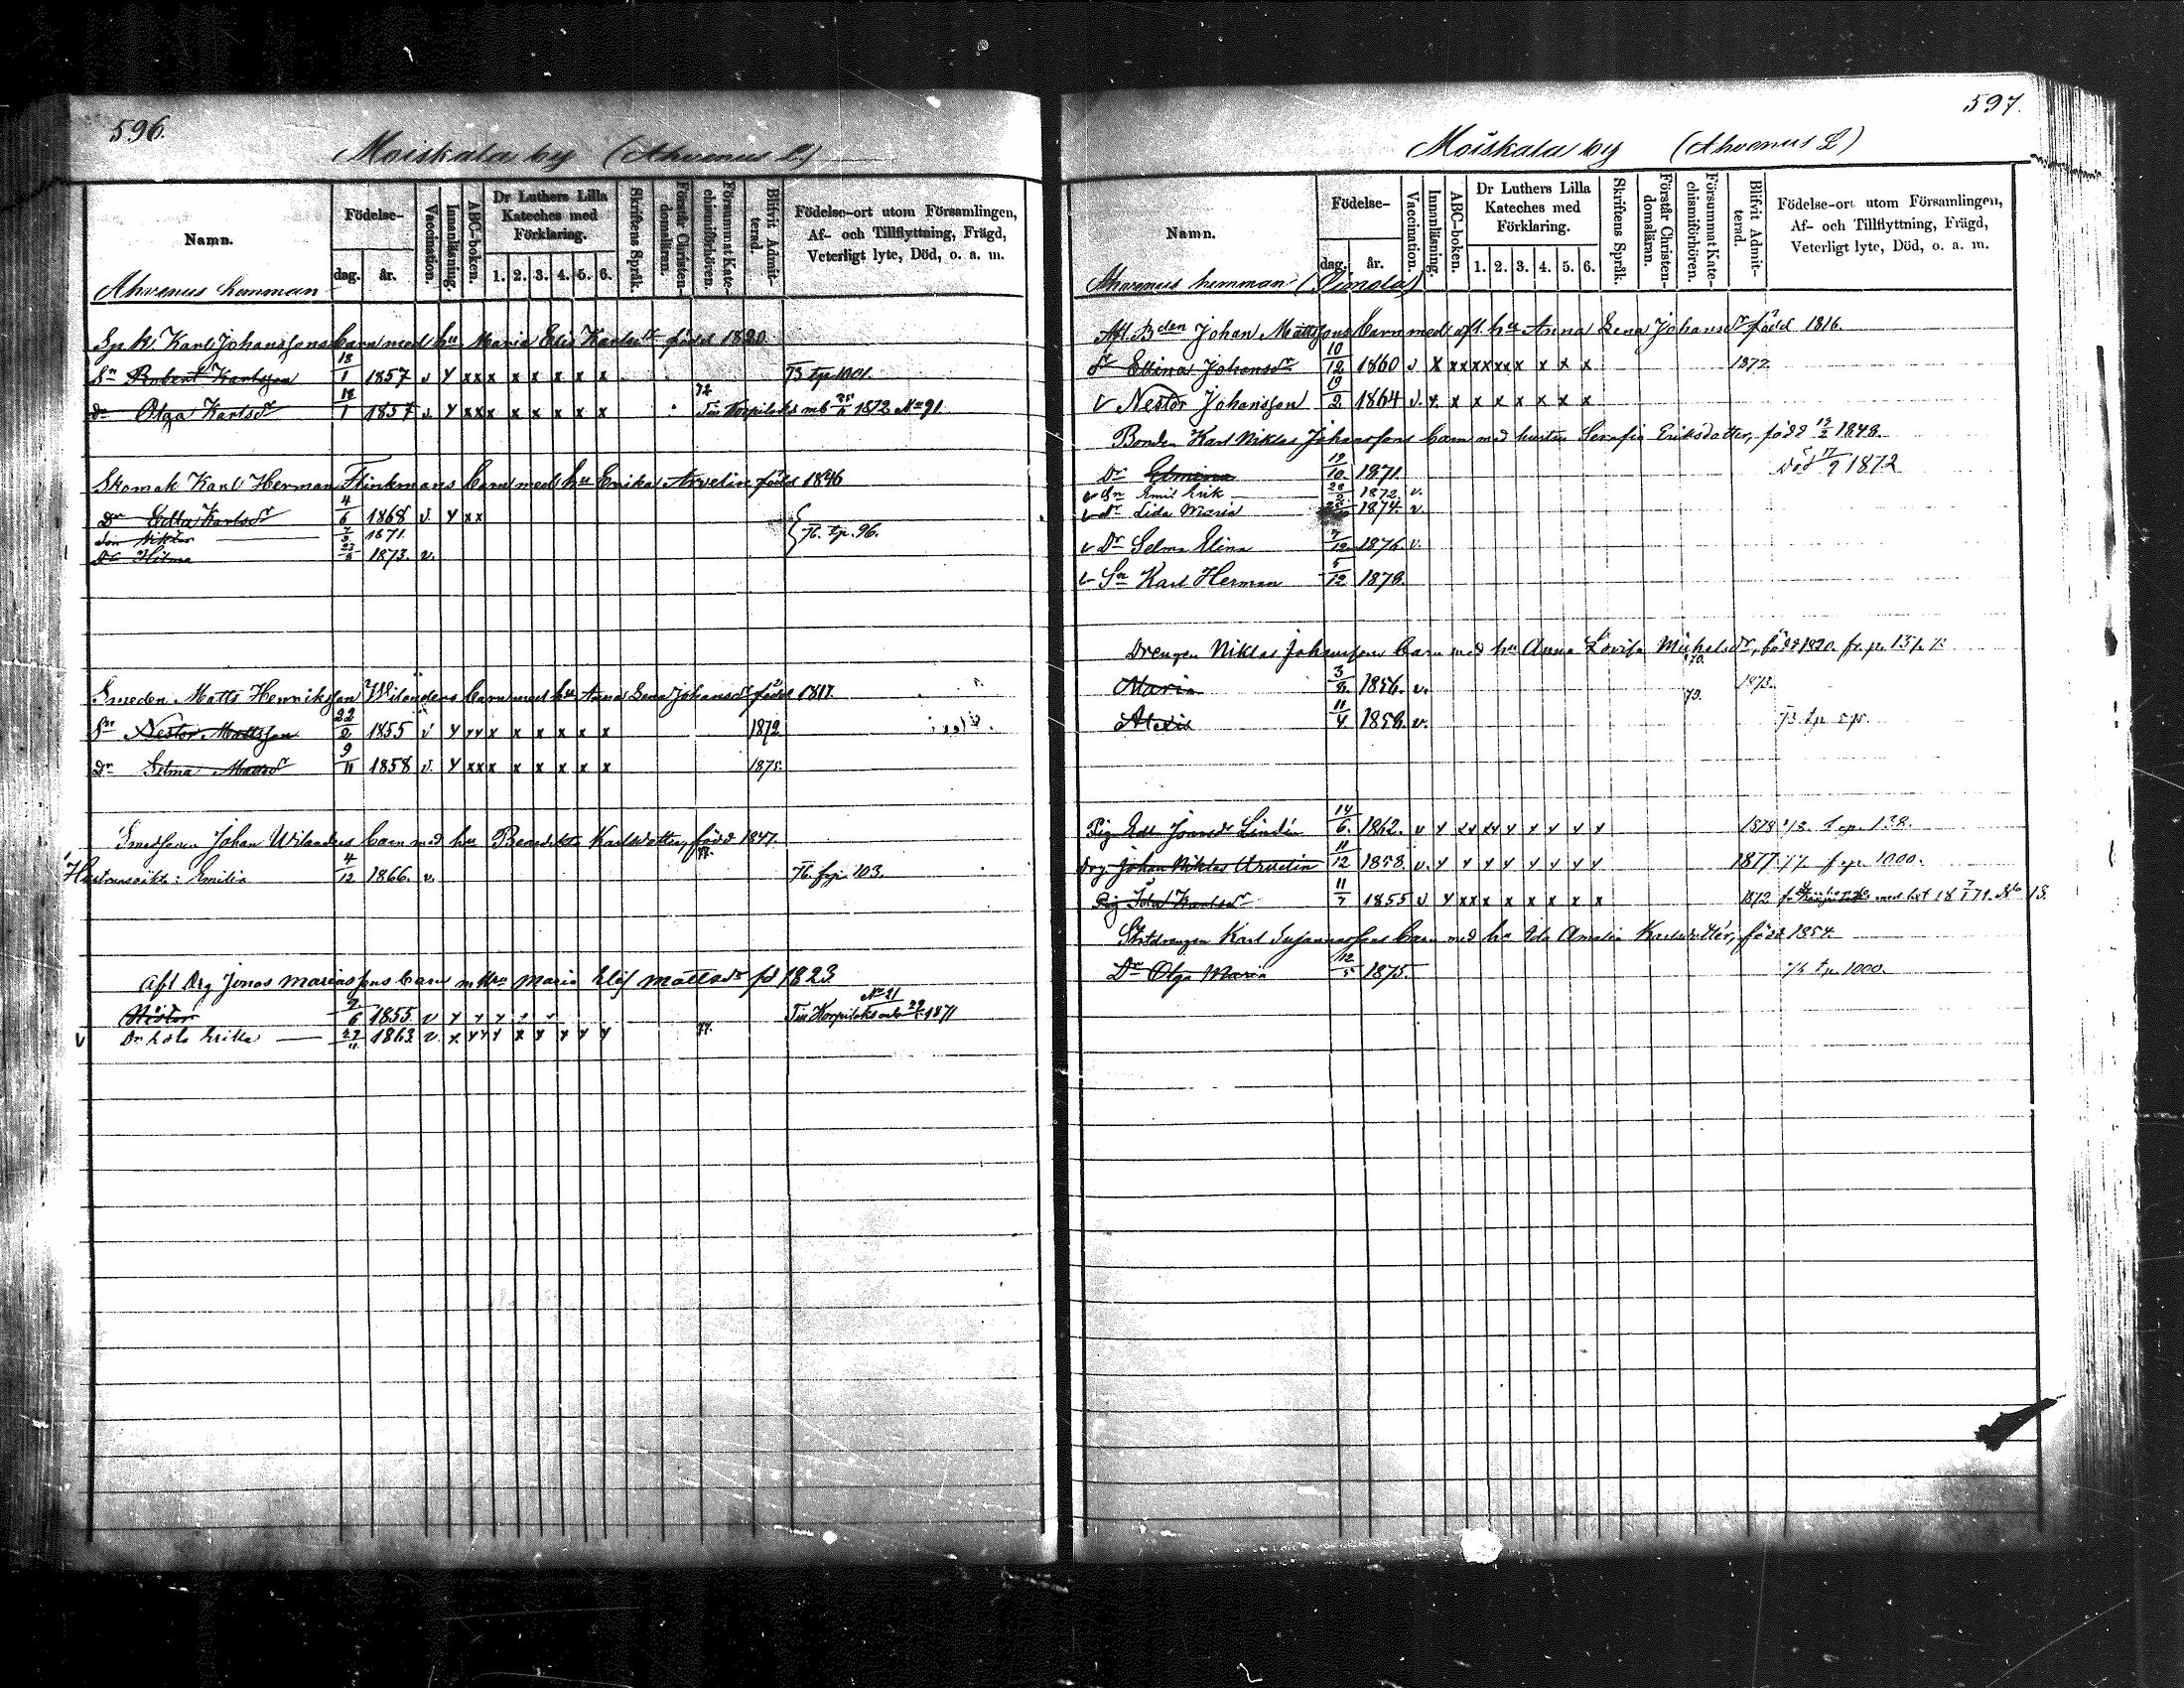 596.
Moiskala by (Ahvenus L)
Namn.
Födelse-
dag.
år.
Vaccination.
Innanläsning.
ABC-boken.
Dr Luthers Lilla Kateches med Förklaring.
1. 2. 3. 4. 5. 6.
Skriftens Språk.
Förstår Christen-domsläran.
Försummat Kate-chismiförhören.
Blifvit Admit-terad.
Födelse-ort utom Församlingen,
Af- och Tillflyttning, Frägd,
Veterligt lyte, Död, o. a. m.
Ahvenus hemman
Karl Johanssons barn med hu Maria Elis Karlsdr född 1820.
Sn Robert Karlsson 18/1 1857 v y xx x x x x x x 73 tp 1001.
Dr Olga Karlsdr 18/1 1857 v. y xx x x x x x x 72 Till Korpiloks mb 25/5 1872 No 91
Skomak Karl Herman Flinkmans barn med hu Erika Arvelin född 1846
Dr Edla Karlsdr 4/6 1868 v. y xx
Son Viktor 1871. 76. tp. 96.
Dr Hilma 1873. v.
Smeden Matts Henriksson Wilanders barn med hu Anna Lena Johansdr född 1817.
Sn Nestor Mattsson 22/2 1855 v y xx x x x x x x 1872
Dr Selma Mattsdr 9/11 1858 v. y xxx x x x x x 1875.
Smedsonen Johan Wilanders barn med hu Benedikta Karlsdotter, född 1847.
Hustruns oäkta: Emilia 4/12 1866. v. 77. 76. fp. 103.
Afl Drg Jonas Mariassons barn m hu Maria Elis Mattsdr fd 1823
6 1855 v y y y y y No 21 Till Korpiloks mb 29/5 1871
v Dr Erika 27/11 1863 v. x yyy x y y y y 77.
597.
Moiskala by (Ahvenus L)
Namn.
Födelse-
dag.
år.
Vaccination.
Innanläsning.
ABC-boken.
Dr Luthers Lilla Kateches med Förklaring.
1. 2. 3. 4. 5. 6.
Skriftens Språk.
Förstår Christen-domsläran.
Försummat Kate-chismiförhören.
Blifvit Admit-terad.
Födelse-ort utom Församlingen,
Af- och Tillflyttning, Frägd,
Veterligt lyte, Död, o. a. m.
Ahvenus hemman
Afl. Bden Johan Mattssons barn med afl. hu Anna Lena Johansdr född 1816.
Dr Johansdr 10/12 1860 v x xx xx xx x x x 1872.
v Nestor Johansson 19/2 1864 v. x. x x x x x x x
Bonden Karl Niklas Johanssons barn med hustru Serafia Eriksdotter, född 12/2 1848.
Dr Elmina 19/10 1871. död 17/9 1872
v Sn Emil Erik 28/2 1872. v.
v Dr Lida Maria 1874. v.
v Dr Selma Elina 7/12 1876 v.
v Sn Karl Herman 5/12 1878.
Drengen Niklas Johanssons barn med hu Anna Lovisa Michelsdr, född 1820.
Maria 3/8 1856. v. 1873.
Alexis 11/4 1858. v. 73
Pig Johansdr Lindén 14/6 1862. v y xx xx y y y y y 1878 fp. 138.
Drg Johan Niklas Arvelin 11/12 1858. v. y y y y y y y y 1877 fp. 1000.
Pig Ida Karlsdr 11/7 1855 v y xx x x x x x x 1872
Karl Susannassons barn med hu Ida Amalia Karlsdotter, född 1854
Dr Olga Maria 12/5 1875. tp. 1000.